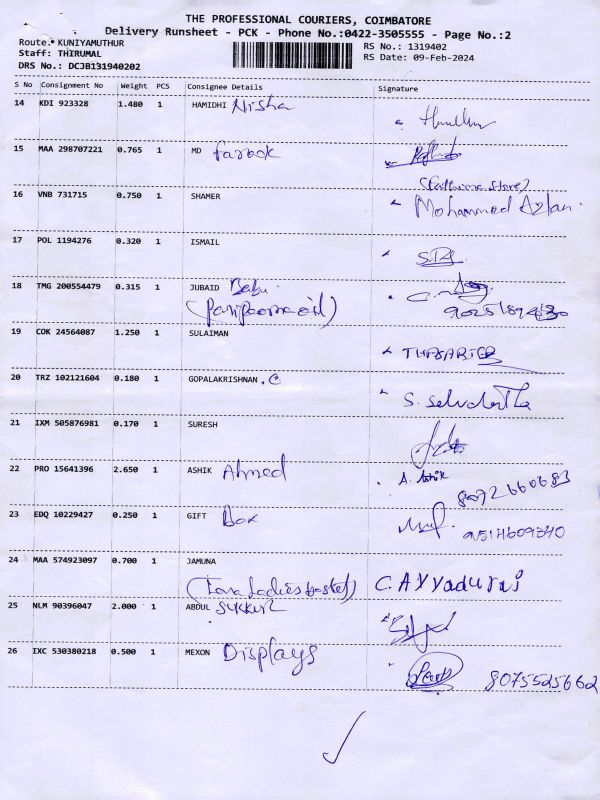 THE PROFESSIONAL COURIERS, COIMBATORE
Delivery Runsheet - PCK - Phone No.:0422-3505555 - Page No.:2
Route: KUNIYAMUTHUR
RS No.: 1319402
Staff: THIRUMAL
RS Date: 09-Feb-2024
DRS No.: DCJB131940202
S No Consignment No Weight PCS Consignee Details Signature
14 KDI 923328 1.480 1 HAMIDHI Nisha
15 MAA 298707221 0.765 1 MD farook
16 VNB 731715 0.750 1 SHAMER Mohammed Azlan
17 POL 1194276 0.320 1 ISMAIL
18 TMG 200554479 0.315 1 JUBAID Babu
19 COK 24564087 1.250 1 SULAIMAN
20 TRZ 102121604 0.180 1 GOPALAKRISHNAN .C
21 IXM 505876981 0.170 1 SURESH
22 PRO 15641396 2.650 1 ASHIK Ahmed A. Ashik
8072660683
23 EDQ 10229427 0.250 1 GIFT Box
24 MAA 574923097 0.700 1 JAMUNA
C. Ayyadurai
25 NLM 90396047 2.000 1 ABDUL SUKKUR
26 IXC 530380218 0.500 1 MEXON Displays
8075525662